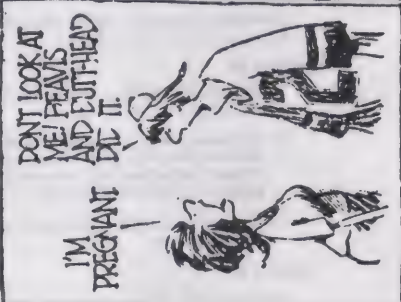 I'M
PREGNANT
DON'T LOOK AT
ME! BEAVIS
AND BUTT-HEAD
DID IT.